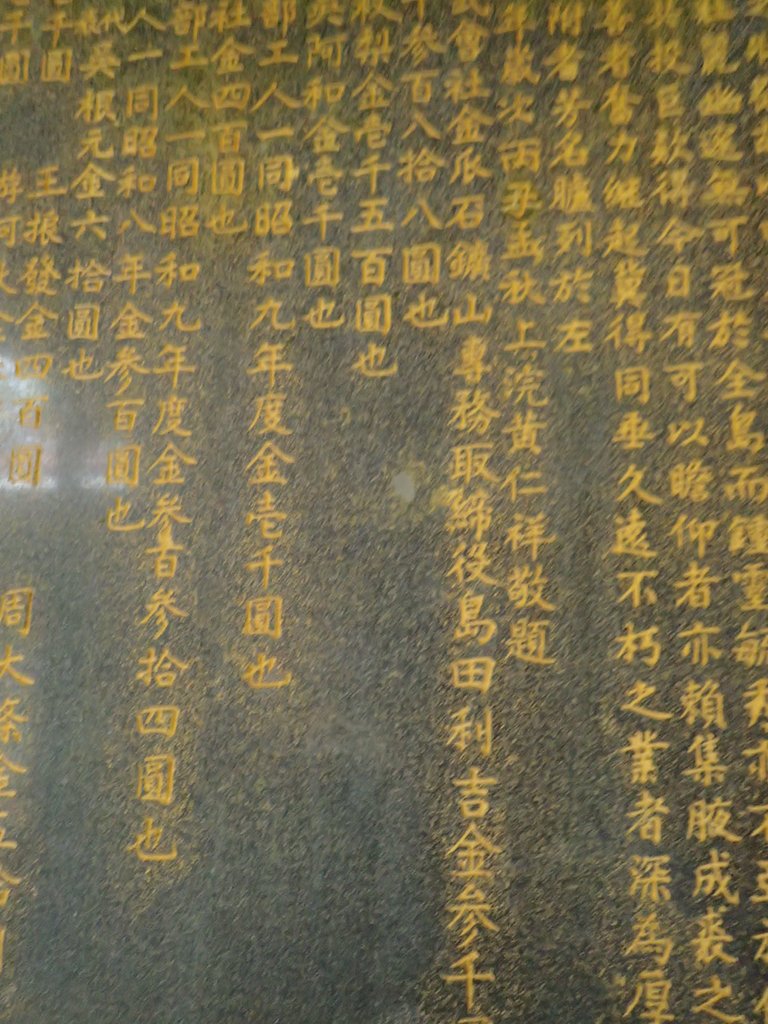 觀幽邃無可冠於全島而鍾靈毓秀亦不亞於
投巨款得今日有可以瞻仰者亦賴集腋成裘之
善者奮力繼起冀得同垂久遠不朽之業者深為厚
附者芳名臚列於左
年歲次丙子孟秋上浣黃仁祥敬題
式會社金瓜石鑛山專務取締役島田利吉金參千
千參百八拾八圓也
梨金壱千五百圓也
吳阿和金壱千圓也
部工人一同昭和九年度金壱千圓也
社金四百圓也
部工人一同昭和九年度金參百參拾四圓也
人一同昭和八年金參百圓也
吳根元金六拾圓也
千圓 王振發金四百圓 周大條金五拾
千圓 游阿